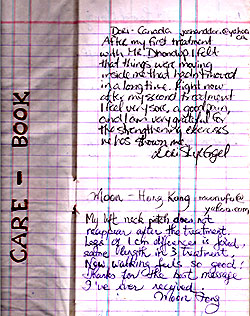 CARE - BOOK
Dori - Canada
After my first treatment
with Mr. I felt
that things were moving
inside me that hadn't moved
in a long time. Right now
after my second treatment
I feel very sore, a good pain,
and I am very grateful for
the strengthening exercises
he has shown me.
Moon - Hong Kong
yahoo.com
My left neck pain does not
reappear after the treatment.
Legs of 1 cm difference is fixed,
same length in 3 treatment.
Now walking feels so good!
Thanks for the best massage
I've ever received.
Moon Fong